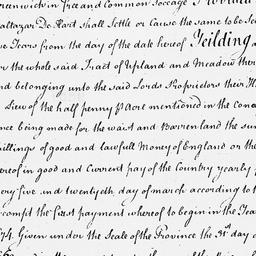 Greenwich in free and Common Soccage
altazar De Hart Shall Settle or Cause the same to be Se
ve Years from the day of the date hereof Yeilding a
or the whole said Tract of Upland and Meadow ther
nd belonging unto the said Lords Proprietors their H
Liew of the half penny p Acre mentioned in the Conc
nce being made for the waist and Barren land the sum
hillings of good and lawfull Money of England or the
hereof in good and Currant pay of the Country yearly
very five and twentyeth day of march according to t
ccompt the first payment whereof to begin in the Year
74. Given under the Seale of the Province the 31st day o